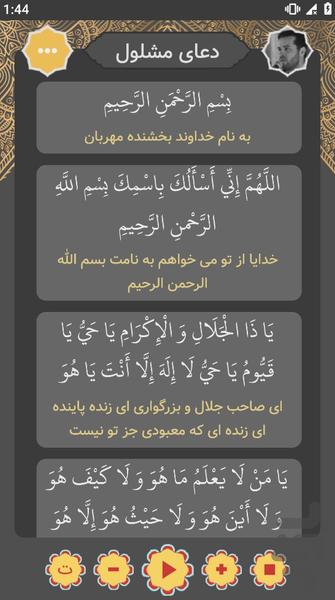 1:44
دعای مشلول
بِسْمِ اللَّهِ الرَّحْمَنِ الرَّحِيمِ
به نام خداوند بخشنده مهربان
اللَّهُمَّ إِنِّي أَسْأَلُكَ بِاسْمِكَ بِسْمِ اللَّهِ
الرَّحْمنِ الرَّحِيمِ
خدایا از تو می خواهم به نامت بسم الله
الرحمن الرحیم
يَا ذَا الْجَلَالِ وَ الْإِكْرَامِ يَا حَيُّ يَا
قَيُّومُ يَا حَيُّ لَا إِلَهَ إِلَّا أَنْتَ يَا هُوَ
ای صاحب جلال و بزرگواری ای زنده پاینده
ای زنده ای که معبودی جز تو نیست
يَا مَنْ لَا يَعْلَمُ مَا هُوَ وَ لَا كَيْفَ هُوَ
وَ لَا أَيْنَ هُوَ وَ لَا حَيْثُ هُوَ إِلَّا هُوَ
ت